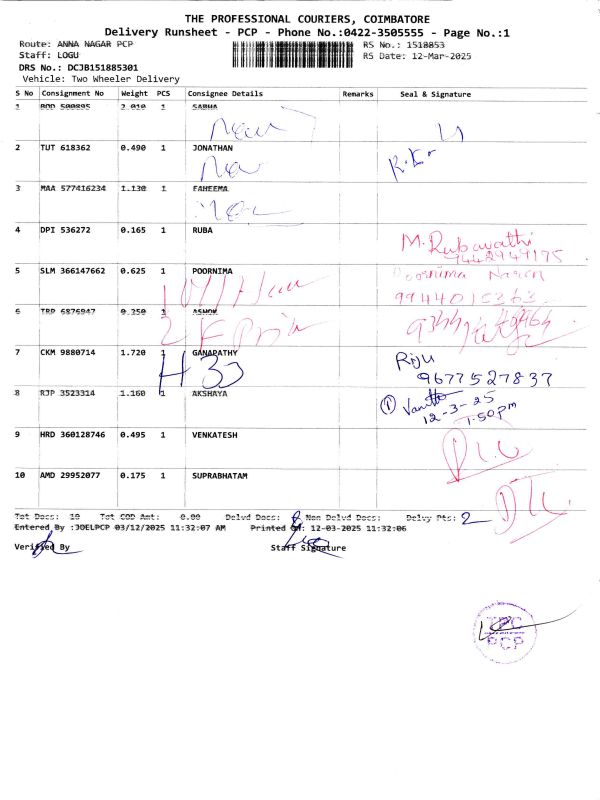 THE PROFESSIONAL COURIERS, COIMBATORE
Delivery Runsheet - PCP - Phone No.:0422-3505555 - Page No.:1
Route: ANNA NAGAR PCP RS No.: 1518853
Staff: LOGU RS Date: 12-Mar-2025
DRS No.: DCJB151885301
Vehicle: Two Wheeler Delivery
S No Consignment No Weight PCS Consignee Details Remarks Seal & Signature
1 BOD 500895 2.010 1 SABHA
2 TUT 618362 0.490 1 JONATHAN
R.K
3 MAA 577416234 1.130 1 FAHEEMA
4 DPI 536272 0.165 1 RUBA
M.Rubavathi
9442949175
5 SLM 366147662 0.625 1 POORNIMA
Poornima Naren
9944015363
6 TRP 6876947 0.250 1 ASHOK
7 CKM 9880714 1.720 1 GANAPATHY
H 33
Riju
9677527837
8 RJP 3523314 1.160 1 AKSHAYA
12-3-25
1.50pm
9 HRD 360128746 0.495 1 VENKATESH
10 AMD 29952077 0.175 1 SUPRABHATAM
Tot Docs: 10 Tot COD Amt: 0.00 Delvd Docs: 8 Non Delvd Docs: Delvy Pts: 2
Entered By :JOELPCP 03/12/2025 11:32:07 AM Printed On: 12-03-2025 11:32:06
Verified By Staff Signature
TPC
PCP